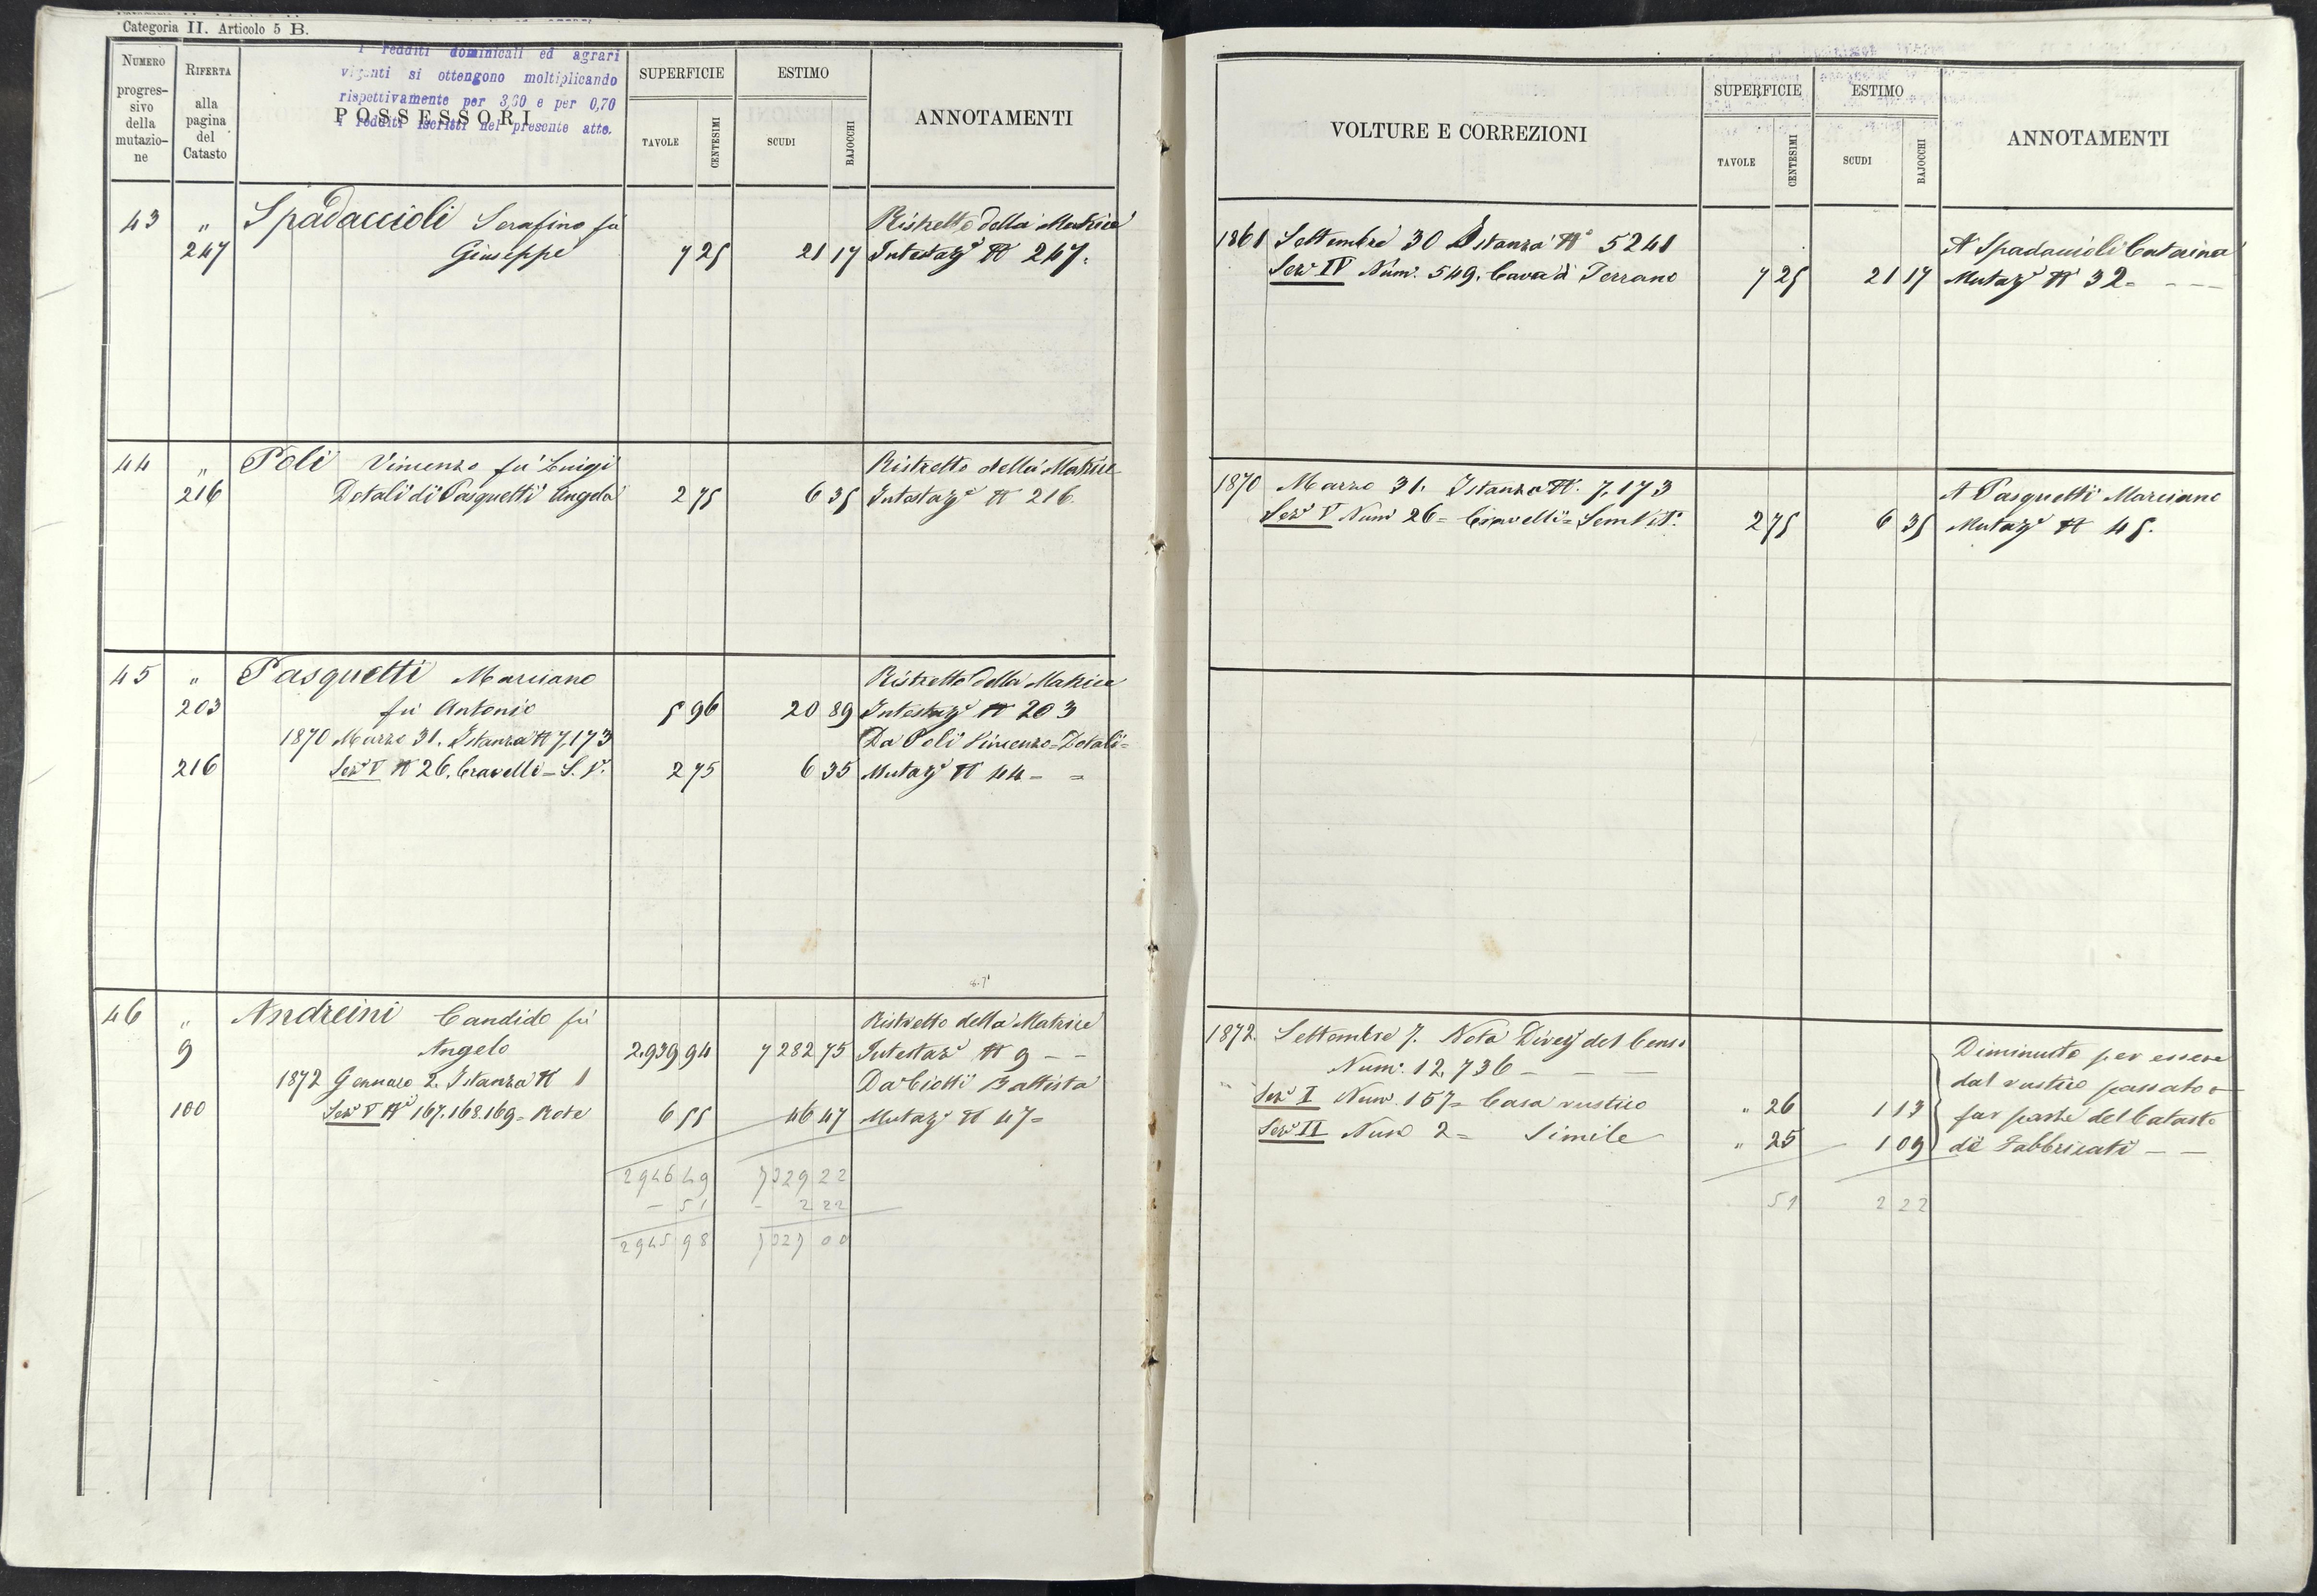 Categoria II. Articolo 5 B.
NUMERO
progres-
sivo
della
mutazio-
ne
RIFERTA
alla
pagina
del
Catasto
I redditi dominicali ed agrari
vigenti si ottengono moltiplicando
rispettivamente per 3,60 e per 0,70
i redditi iscritti nel presente atto.
POSSESSORI
SUPERFICIE
TAVOLE
CENTESIMI
ESTIMO
SCUDI
BAJOCCHI
ANNOTAMENTI
43 " Spadaccioli Serafino fu Ristretto della Matrice
247 Giuseppe 7 25 21 17 Intestazᵉ N 247.
44 " Poli Vincenzo fu Luigi Ristretto della Matrice
216 Dotali di Pasquetti Angela 2 75 6 35 Intestazᵉ N 216.
45 " Pasquetti Marciano Ristretto della Matrice
203 fu Antonio 5 96 20 89 Intestazᵉ N 203
1870 Marzo 31. Istanza N 7,173 Da Poli Vincenzo = Dotali =
216 Sezᵉ V N 26. Cravelli = S. V. 2 75 6 35 Mutazᵉ N 44 - =
46 " Andreini Candido fu Ristretto della Matrice
9 Angelo 2.939 94 7 282 75 Intestazᵉ N 9 - -
1872 Gennaro 2. Istanza N 1 Da Ciotti Battista
100 Sezᵉ V Nⁱ 167.168.169 = Rote 6 55 46 47 Mutazᵉ N 47 =
2946 49 7329 22
- 51 - 2 22
2945 98 7327 00
VOLTURE E CORREZIONI
SUPERFICIE
TAVOLE
CENTESIMI
ESTIMO
SCUDI
BAJOCCHI
ANNOTAMENTI
1861 Settembre 30 Istanza N° 5241 A Spadaccioli Catarina
Sezᵉ IV Num. 549. Cava di Terrano 7 25 21 17 Mutazᵉ N 32 = - - -
1870 Marzo 31. Istanza N. 7,173 A Pasquetti Marciano
Sezᵉ V Num 26 = = Sem. V. T. 2 75 6 35 Mutazᵉ N 45.
1872. Settembre 7. Nota Direz del Censo Diminuito per essere
Num. 12,736 - - - dal rustico passato a
Sezᵉ I Num. 157 = Casa rustico " 26 1 13 far parte del Catasto
Sezᵉ II Num 2 = Simile " 25 1 09 dei Fabbricati - -
51 2 22